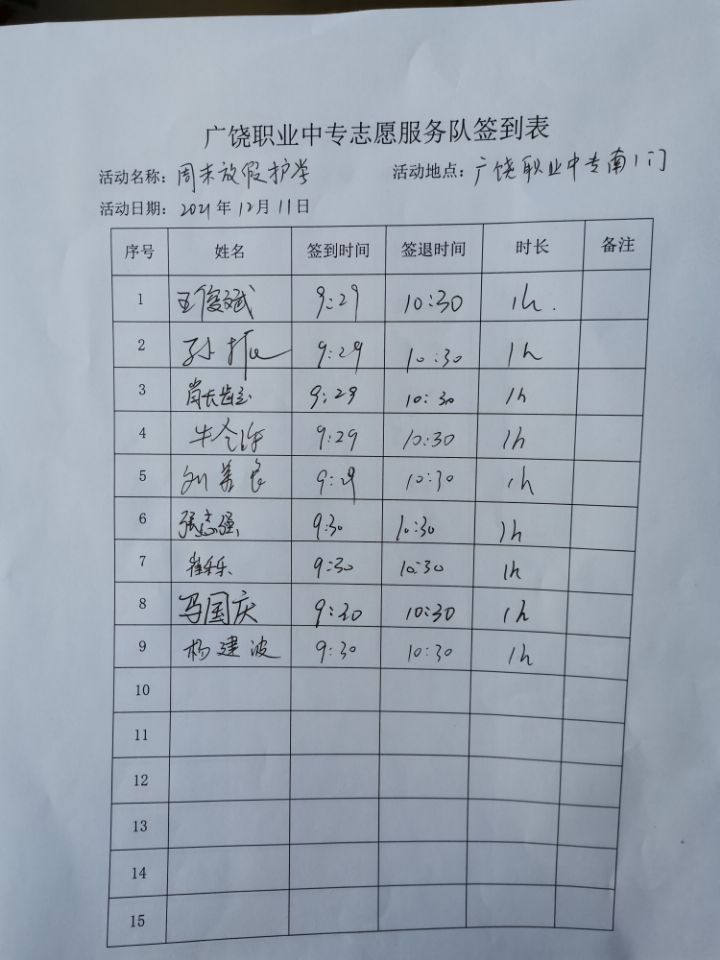 广饶职业中专志愿服务队签到表
活动名称：周末放假护学 活动地点：广饶职业中专南门
活动日期：2021年12月11日
序号 姓名 签到时间 签退时间 时长 备注
1 王俊斌 9:29 10:30 1h.
2 孙 9:29 10:30 1h
3 9:29 10:30 1h
4 牛 9:29 10:30 1h
5 刘 9:29 10:30 1h
6 张志强 9:30 10:30 1h
7 崔乐乐 9:30 10:30 1h
8 冯国庆 9:30 10:30 1h
9 杨建波 9:30 10:30 1h
10
11
12
13
14
15